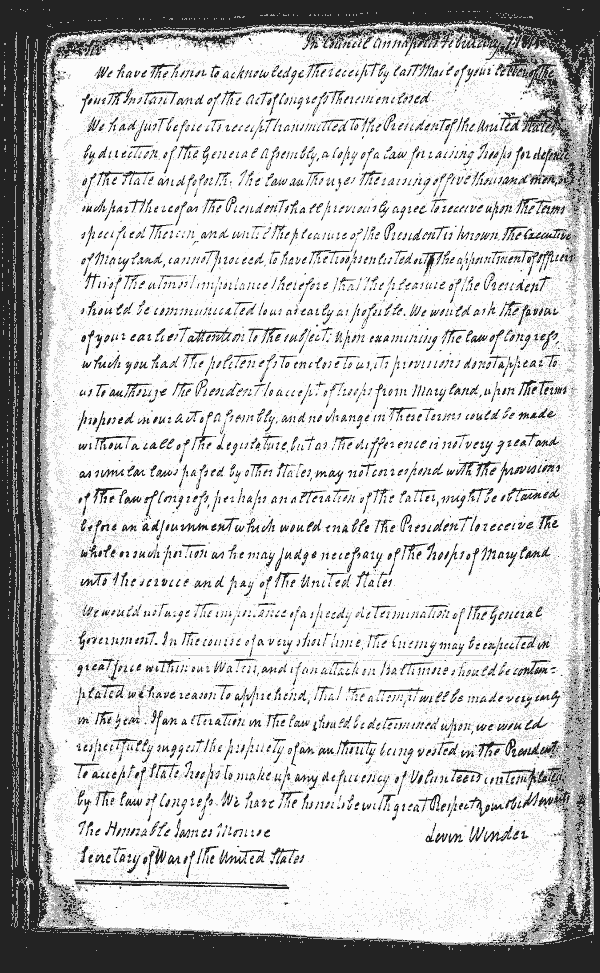 In Council Annapolis February
We have the honor to acknowledge the receipt by last Mail of your letter of the
fourth Instant and of the Act of Congress therein enclosed.
We had just before its receipt transmitted to the President of the United States
by direction, of the General Assembly, a copy of a Law for raising Troops for defence
of the State and so forth. The law authorizes the raising of five thousand men, or
such part thereof as the President shall previously agree to receive upon the terms
specified therein, and until the pleasure of the President is known, the Executive
of Maryland, cannot proceed, to have the troops enlisted or to the appointment of officers
It is of the utmost importance therefore that the pleasure of the President
should be communicated to us as early as possible. We would ask the favour
of your earliest attention to the subject. Upon examining the Law of Congress,
which you had the politeness to enclose to us, its provisions do not appear to
us to authorize the President to accept of troops from Maryland, upon the terms
proposed in our Act of Assembly, and no change in these terms could be made
without a call of the Legislature, but as the difference is not very great and
as similar laws passed by other States, may not correspond with the provisions
of the Law of Congress, perhaps an alteration of the latter, might be obtained
before an adjournment which would enable the President to receive the
whole or such portion as he may judge necessary of the Troops of Maryland
into the service and pay of the United States
We would not urge the importance of a speedy determination of the General
Government. In the course of a very short time, the Enemy may be expected in
great force within our Waters, and if an attack on Baltimore should be contem=
plated we have reason to apprehend, that the attempt will be made very early
in the year. If an alteration in the law should be determined upon, we would
respectfully suggest the propriety of an authority being vested in the President
to accept of State Troops to make up any deficiency of Volunteers contemplated
by the Law of Congress. We have the honor to be with great Respect your obd Servants
The Honorable James Monroe Levin Winder
Secretary of War of the United States